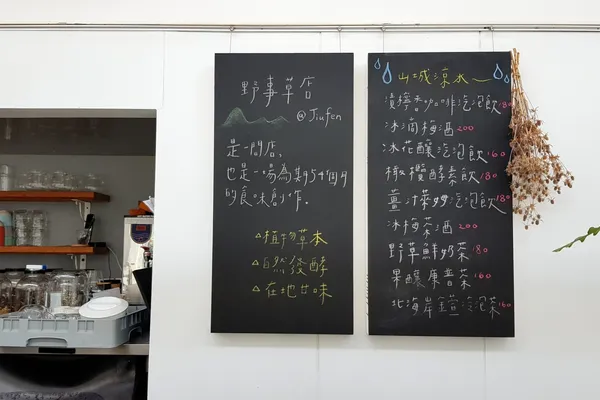 野事草店
@Jiufen
是一間店,
也是一場為期954個月
的食味創作.
△植物草本
△自然發酵
△在地甘味
山城涼水
漬檸香咖啡汽泡飲180
冰滴梅酒200
冰花釀汽泡飲160
橄欖酵素飲180
薑汁菝 汽泡飲180
冰梅茶酒200
野草鮮奶茶180
果釀康普茶160
北海岸 冷泡茶160